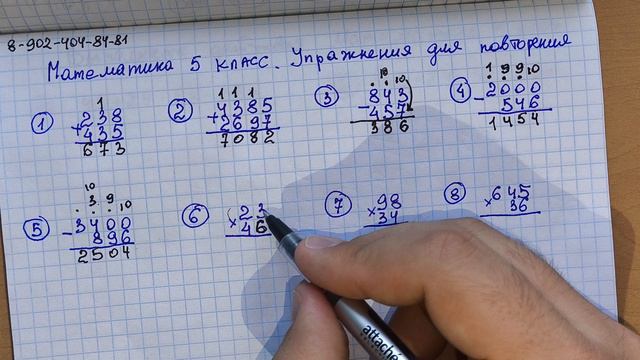 8-902-404-84-81
Математика 5 класс. Упражнения для повторения
1
1
+ 238
435
673
2
1 1 1
+ 4385
2697
7082
3
. 10 . 10
- 843
457
386
4
1 9 9 10
- 2000
546
1454
5
10
. 3 9
. . . 10
- 3400
896
2504
6
× 23
46
7
× 98
34
8
× 645
36
attaché